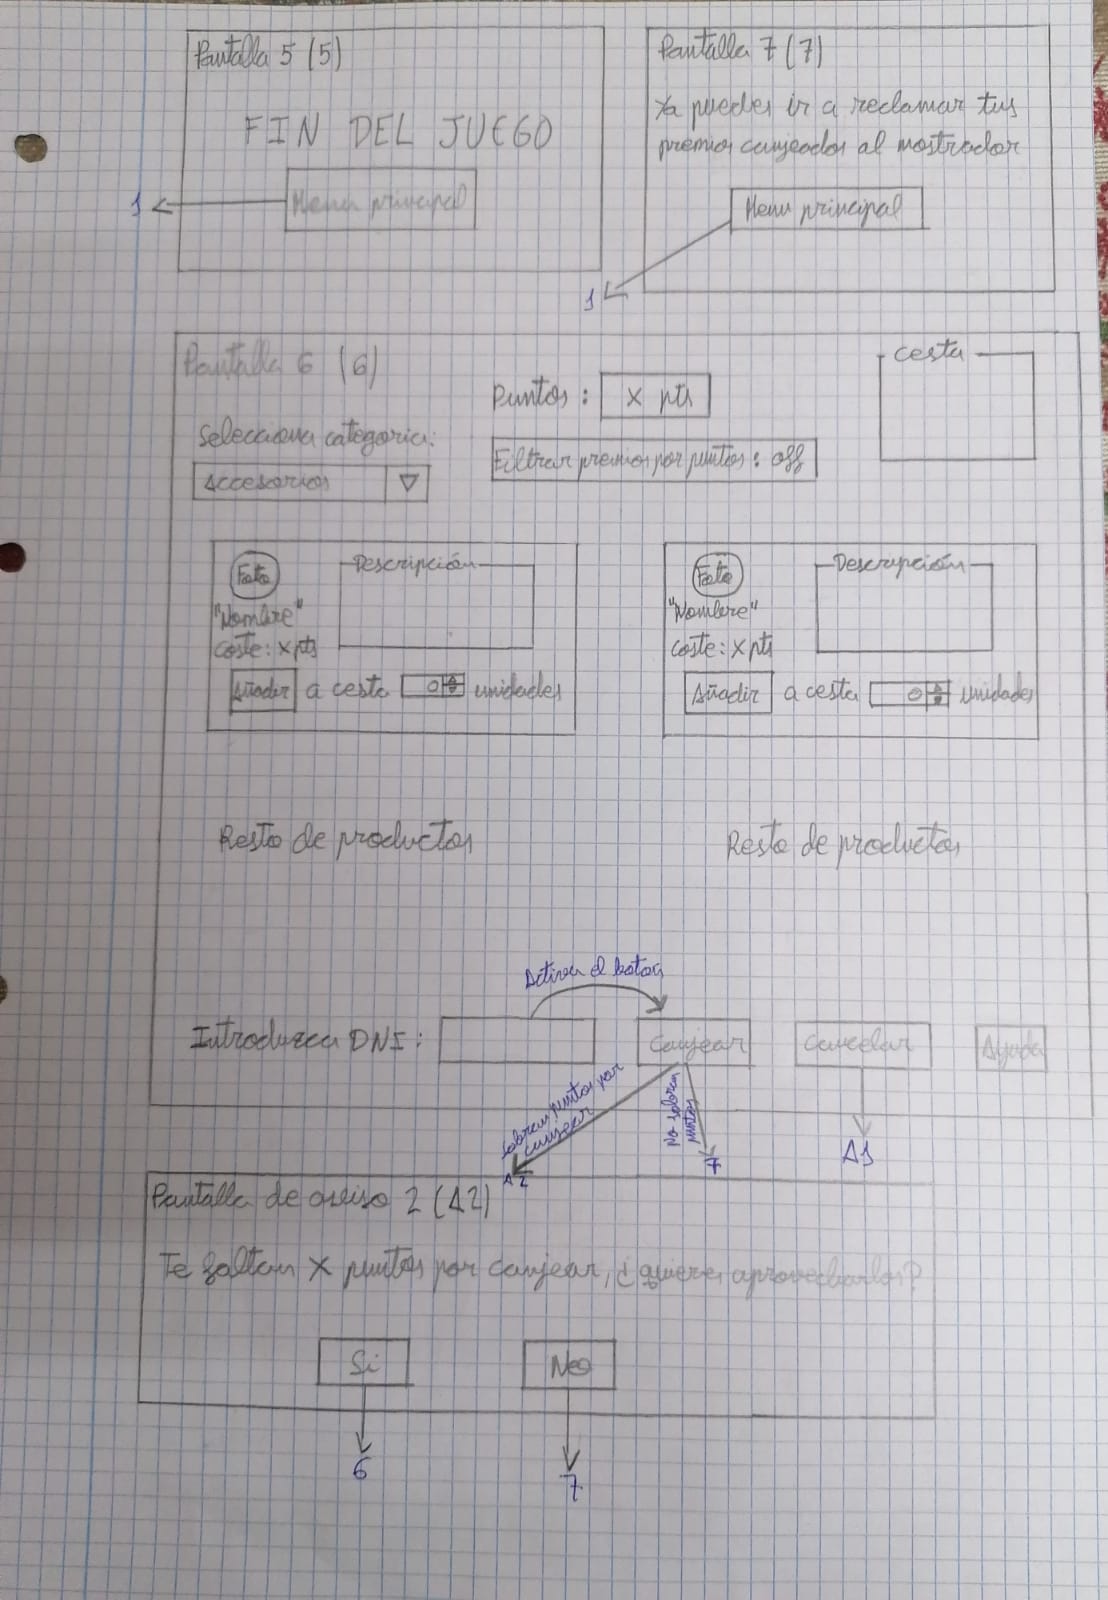 Pantalla 5 (5)
FIN DEL JUEGO
Menu principal
1
Pantalla 7 (7)
Ya puedes ir a reclamar tus
premios canjeados al mostrador
Menu principal
1
Pantalla 6 (6)
Puntos: X pts
cesta
Selecciona categoria:
Accesorios
Filtrar premios por puntos: off
Foto
Descripción
"Nombre"
coste: X pts
Añadir a cesta 0 unidades
Foto
Descripción
"Nombre"
coste: X pts
Añadir a cesta 0 unidades
Resto de productos
Resto de productos
Activa el boton
Introduzca DNI:
Canjear
Cancelar
Ayuda
Sobran puntos por
canjear
No sobran
puntos
A2
7
A1
Pantalla de aviso 2 (A2)
Te faltan X puntos por canjear, ¿quieres aprovecharlos?
Si
No
6
7